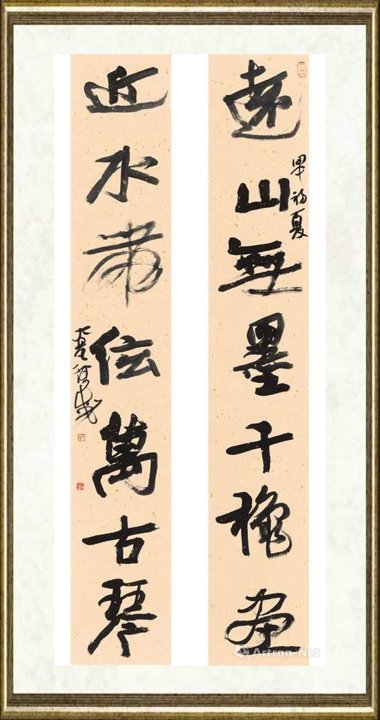 遠山無墨千穐畫
初夏
近水無弦萬古琴
Artron.Net